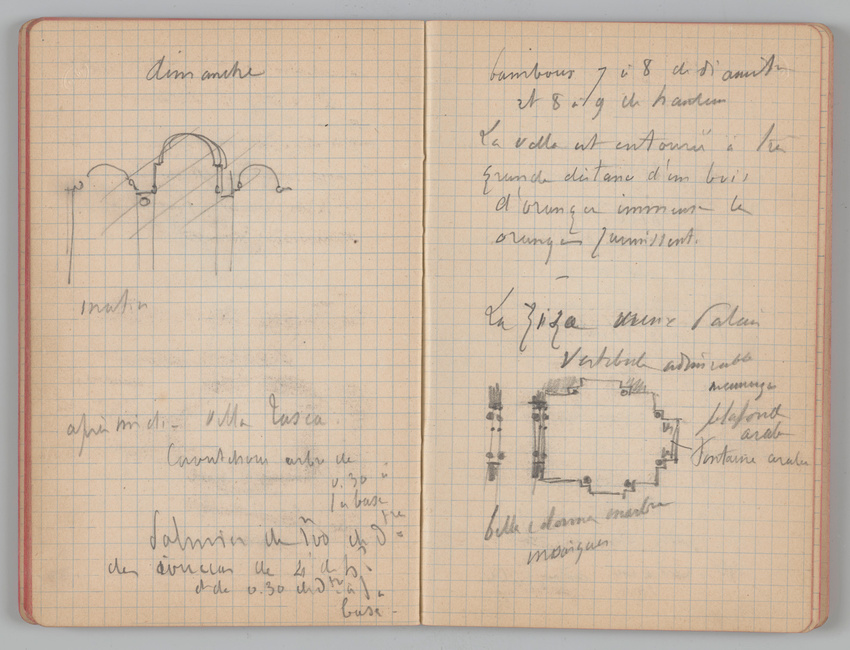 dimanche
matin
après midi - villa Tasca
Caoutchouc arbre de
0.30 à
la base
Palmier de 1m00 de D
des de 4 de h
et de 0.30 de Dtre à la
base -
bambous 7 à 8 de diamètre
et 8 à 9 de hauteur
La ville est entourée à très
grande distance d'un bois
d'oranger immense les
oranges jaunissent.
La Ziza vieux Palais
Vestibule admirable
plafond
arabe
Fontaine arabe
belle colonne marbre
mosaïques